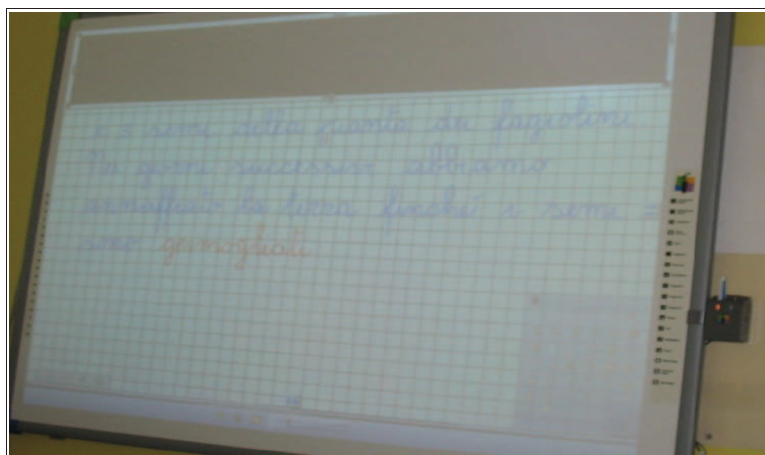 semi della pianta dei fagiolini
giorni successivi abbiamo
annaffiato la terra finché i semi
sono germogliati